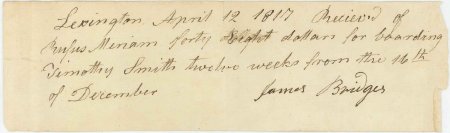 Lexington April 12 1817 Reciev'd of
Rufus Miriam forty Eight dollars for boarding
Timothy Smith twelve weeks from the 16th
of December James Bridges